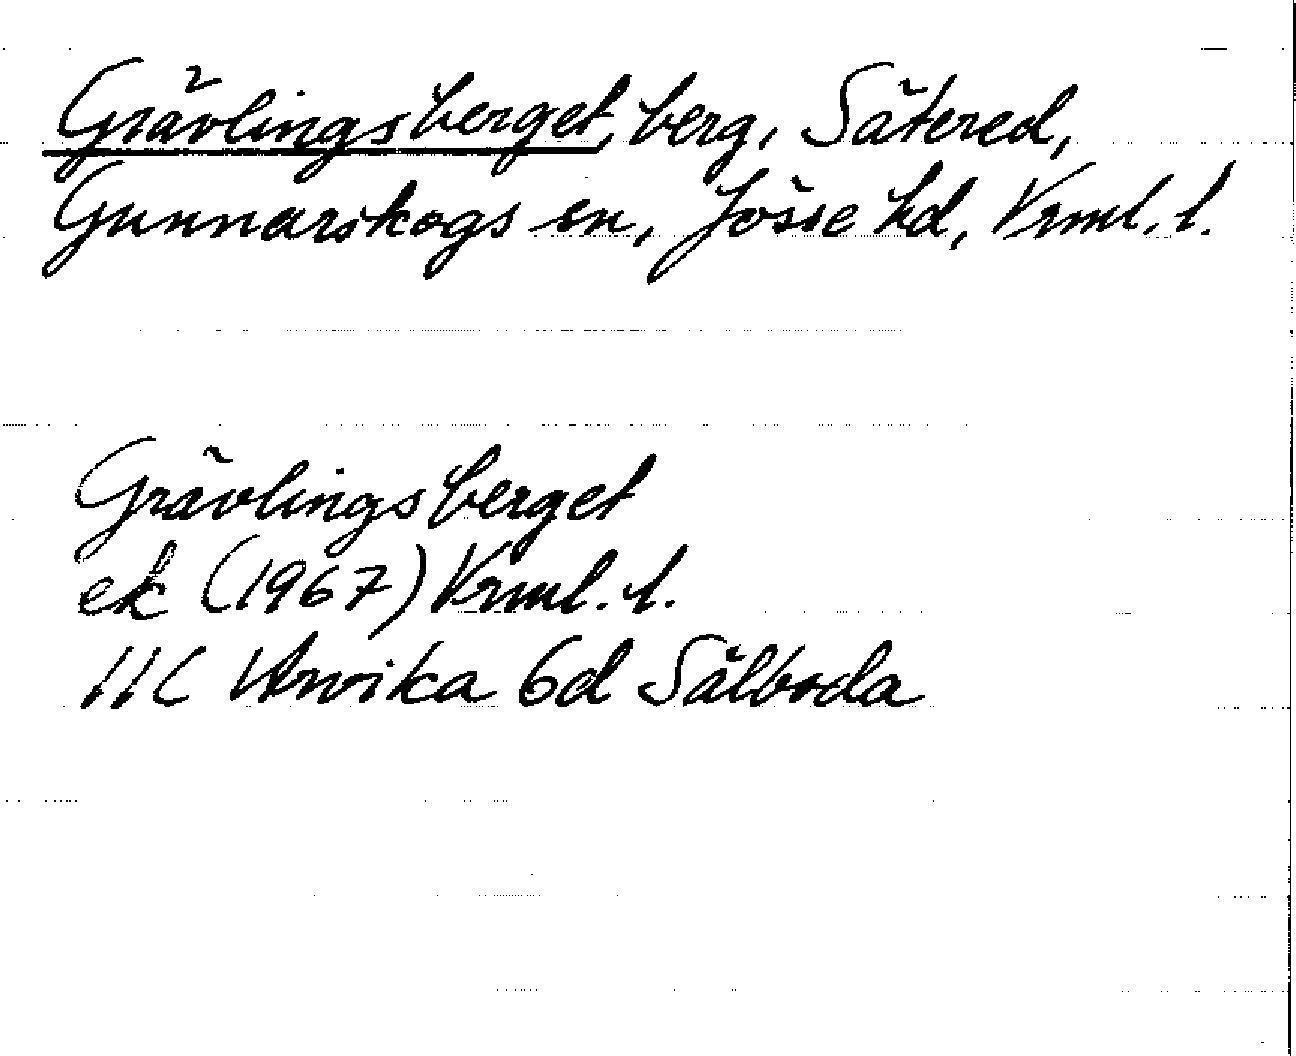 Grävlingsberget, berg, Sätered,
Gunnarskogs sn, Jösse hd, Vrml. l.
Grävlingsberget
ek (1967) Vrml. l.
11C Arvika 6d Sälboda